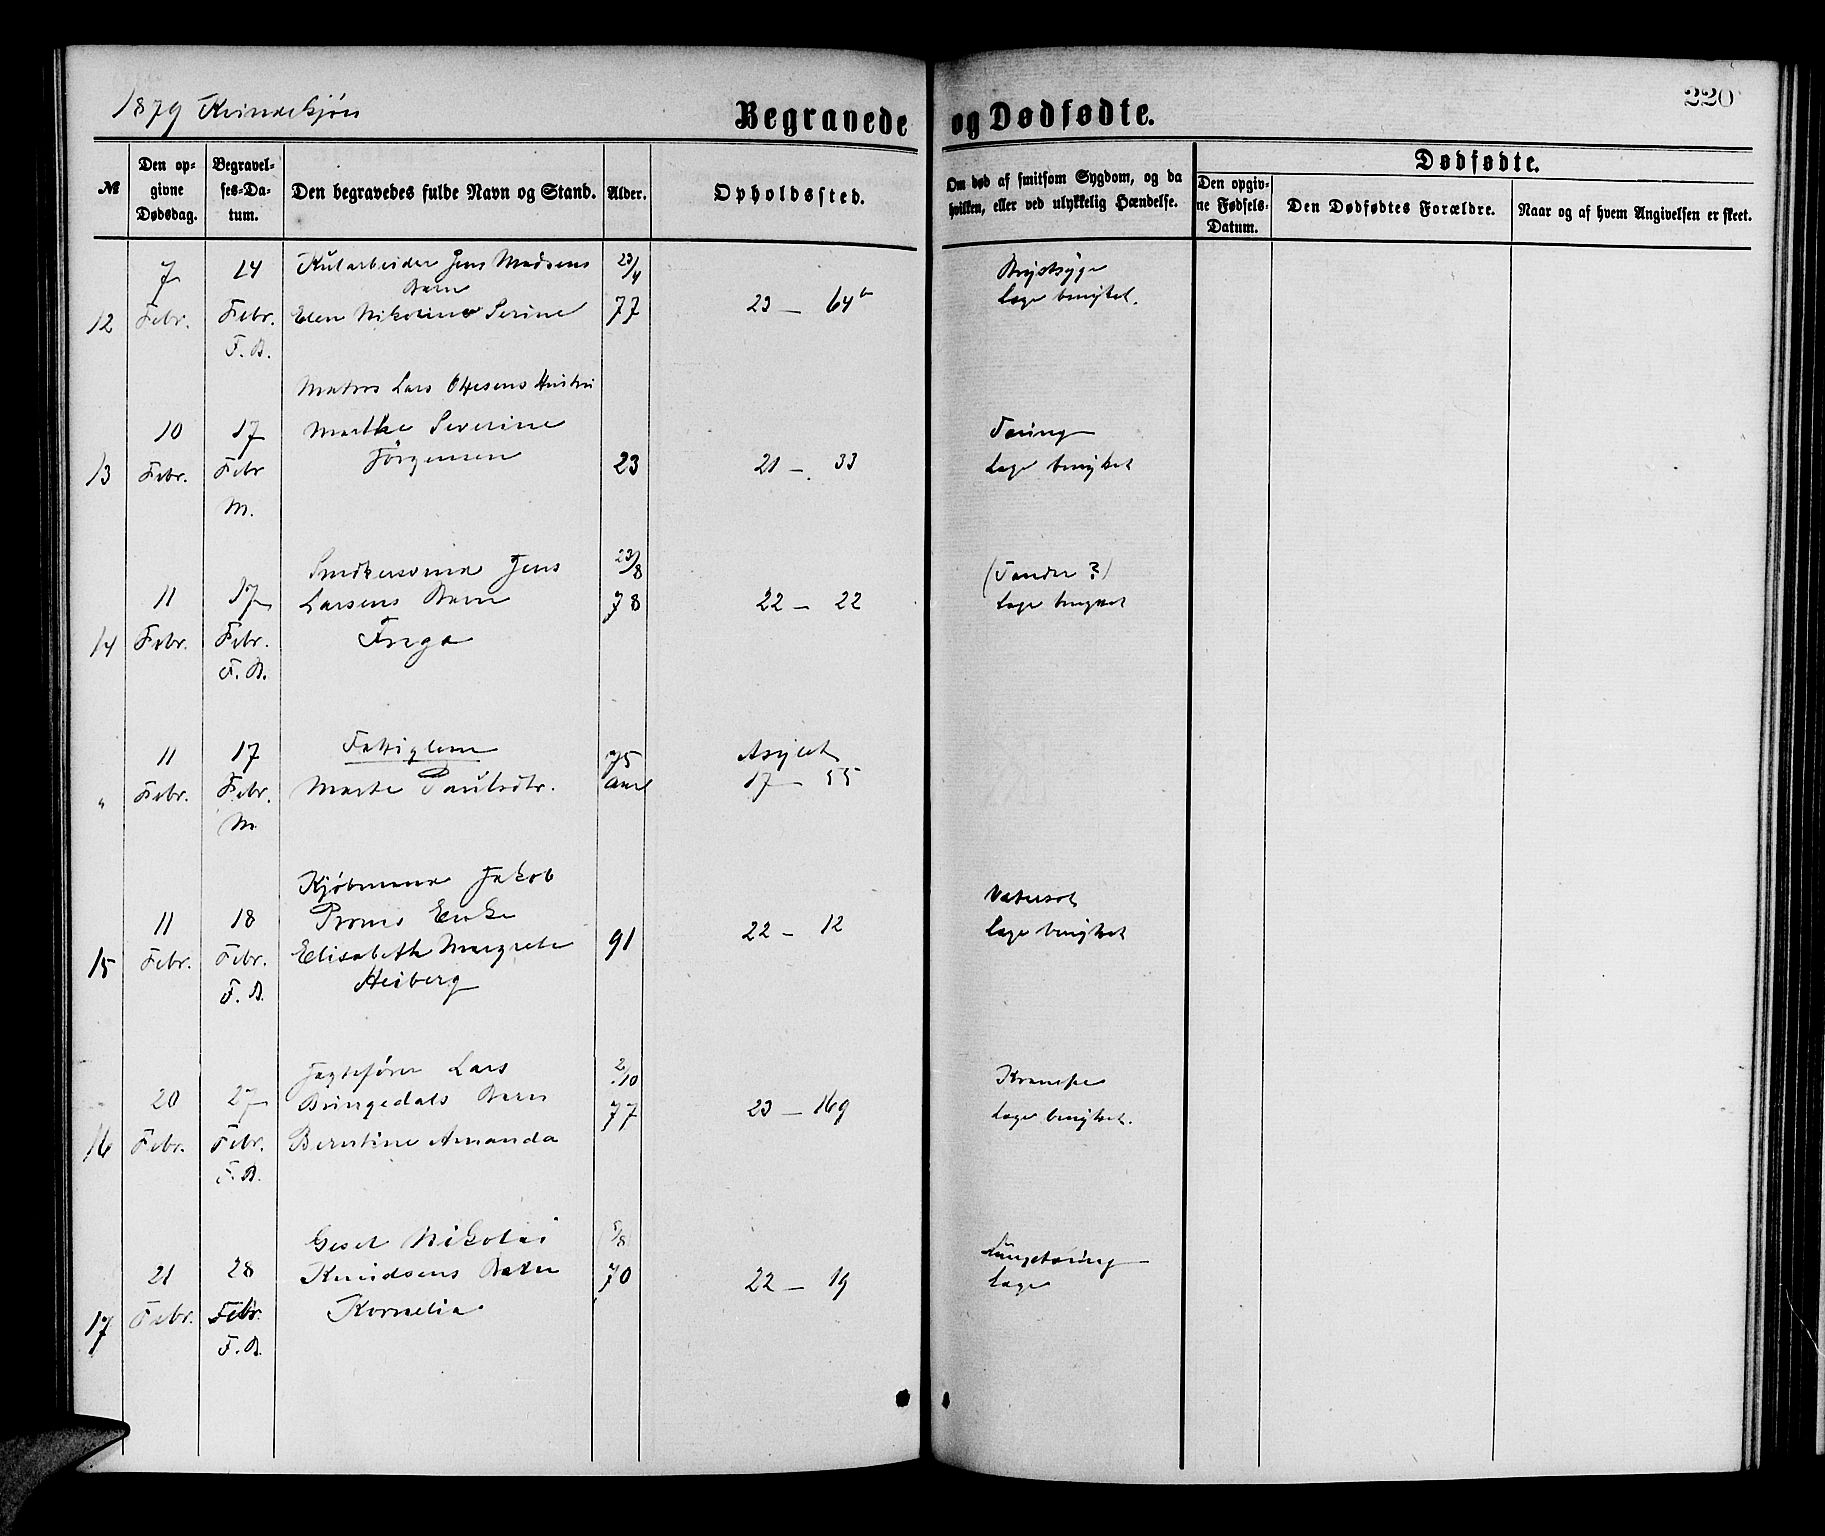 1879 Kvindekjøn
Begravede og Dødfødte.
220
№
Den opgivne Dødsdag.
Begravelses-Datum.
Den begravedes fulde Navn og Stand.
Alder.
Opholdssted.
Om død af smitsom Sygdom, og da hvilken, eller ved ulykkelig Hændelse.
Dødfødte.
Den opgivne Fødsels-Datum.
Den Dødfødtes Forældre.
Naar og af hvem Angivelsen er skeet.
7 14 Kularbeider Jens Madsens 23/4 Brystsyge
Barn
12 Febr. Febr. Elen Nikoline Serine 77 23 – 64b Læge benyttet.
F. B.
Matros Lars Ottesens Hustru
10 17 Marthe Severine Tæring
13 Febr. Febr Jörgensen 23 21 – 33 Læge benyttet
M.
Snedkersvend Jens 23/8 (Tænder?)
11 17 Larsens Barn 78 22 – 22 Læge benyttet
14 Febr. Febr. Friga
F. B.
11 17 Fattiglem 75 Asylet
" Febr. Febr. Marte Paulsdtr. Aar 17 – 55
M.
Kjøbmand Jakob
11 18 Proms Enke 22 – 12
15 Febr. Febr. Elisabeth Margrete 91 Læge benyttet
F. B. Heiberg
Jagtefører Lars 2/10 Krampe
20 27 Bringedals Barn 77 23 – 169 Læge benyttet.
16 Febr. Febr. Berntine Amanda
F. B.
Gesel Nikolai 5/8 Lungetæring
21 28 Knudsens Datter 70 22 – 19 Læge
17 Febr. Febr. Kornelia
F. B.